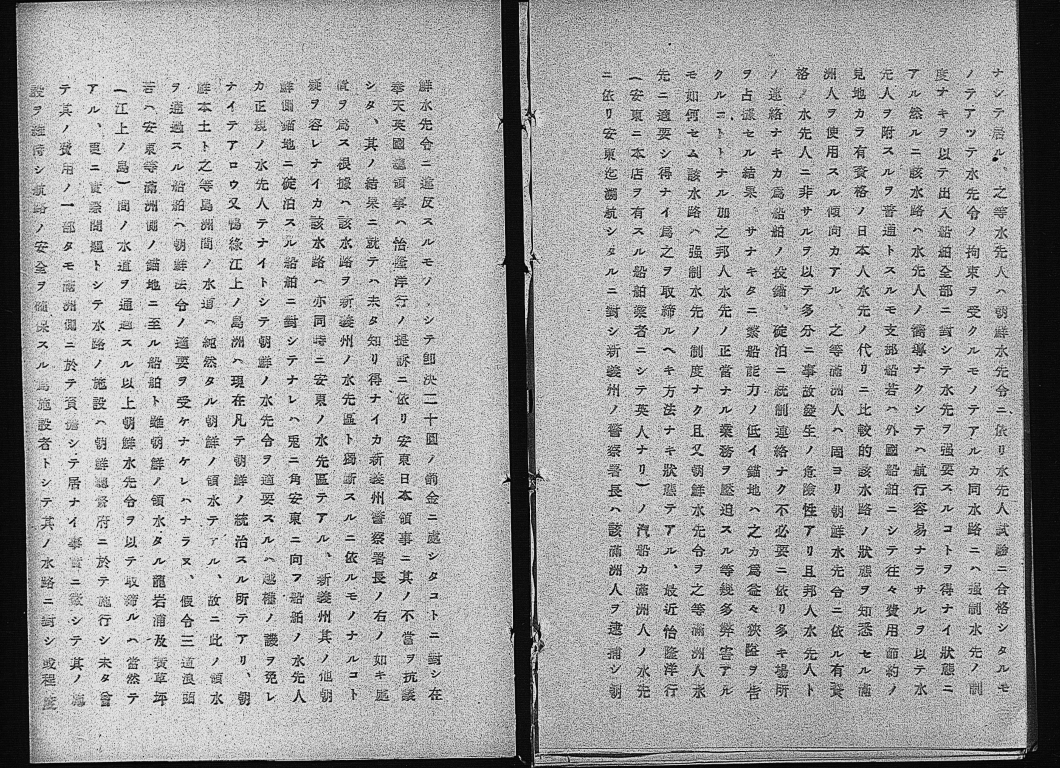 ナシテ居ル、之等水先人ハ朝鮮水先令ニ依リ水先人試驗ニ合格シタルモ
ノテアツテ水先令ノ拘束ヲ受クルモノテアルカ同水路ニハ强制水先ノ制
度ナキヲ以テ出入船舶全部ニ對シテ水先ヲ强要スルコトヲ得ナイ狀態ニ
アル然ルニ該水路ハ水先人ノ嚮導ナクシテハ航行容易ナラサルヲ以テ水
先人ヲ附スルヲ普通トスルモ支那船若ハ外國船舶ニシテ往々費用節約ノ
見地カラ有資格ノ日本人水先ノ代リニ比較的該水路ノ狀態ヲ知悉セル滿
洲人ヲ使用スル傾向カアル、之等滿洲人ハ固ヨリ朝鮮水先令ニ依ル有資
格ノ水先人ニ非サルヲ以テ多分ニ事故發生ノ危險性アリ且邦人水先人ト
ノ連絡ナキカ爲船舶ノ投錨、碇泊ニ統制連絡ナク不必要ニ依リ多キ場所
ヲ占據セル結果、サナキタニ繫船能力ノ低イ錨地ハ之カ爲益々狹隘ヲ吿
クルコトトナル加之邦人水先ノ正當ナル業務ヲ壓迫スル等幾多弊害アル
モ如何セム該水路ハ强制水先ノ制度ナク且又朝鮮水先令ヲ之等滿洲人水
先ニ適要シ得ナイ爲之ヲ取締ルヘキ方法ナキ狀態テアル、最近怡隆洋行
(安東ニ本店ヲ有スル船舶業者ニシテ英人ナリ)ノ汽船カ滿洲人ノ水先
ニ依リ安東迄溯航シタルニ對シ新義州ノ警察署長ハ該滿洲人ヲ逮捕シ朝
鮮水先令ニ違反スルモノトシテ卽決二十圓ノ罰金ニ處シタコトニ對シ在
奉天英國總領事ハ怡隆洋行ノ提訴ニ依リ安東日本領事ニ其ノ不當ヲ抗議
シタ、其ノ結果ニ就テハ未タ知リ得ナイカ新義州警察署長ノ右ノ如キ處
置ヲ爲ス根據ハ該水路ヲ新義州ノ水先區ト獨斷スルニ依ルモノナルコト
疑ヲ容レナイカ該水路ハ亦同時ニ安東ノ水先區テアル、新義州其ノ他朝
鮮側錨地ニ碇泊スル船舶ニ對シテナレハ兎ニ角安東ニ向フ船舶ノ水先人
カ正規ノ水先人テナイトシテ朝鮮ノ水先令ヲ適要スルハ越權ノ譏ヲ免レ
ナイテアロウ又鴨綠江上ノ島洲ハ現在凡テ朝鮮ノ統治スル所テアリ、朝
鮮本土ト之等島洲間ノ水道ハ純然タル朝鮮ノ領水テアル、故ニ此ノ領水
ヲ通過スル船舶ハ朝鮮法令ノ適要ヲ受ケナケレハナラヌ、假令三道浪頭
若ハ安東等滿洲側ノ錨地ニ至ル船舶ト雖朝鮮ノ領水タル龍岩浦及黃草坪
(江上ノ島)間ノ水道ヲ通過スル以上朝鮮水先令ヲ以テ取締ルハ當然テ
アル、更ニ實際問題トシテ水路ノ施設ハ朝鮮總督府ニ於テ施行シ未タ曾
テ其ノ費用ノ一部タモ滿洲側ニ於テ負擔シテ居ナイ事實ニ徵シテ其ノ施
設ヲ維持シ航路ノ安全ヲ確保スル爲施設者トシテ其ノ水路ニ對シ或程度